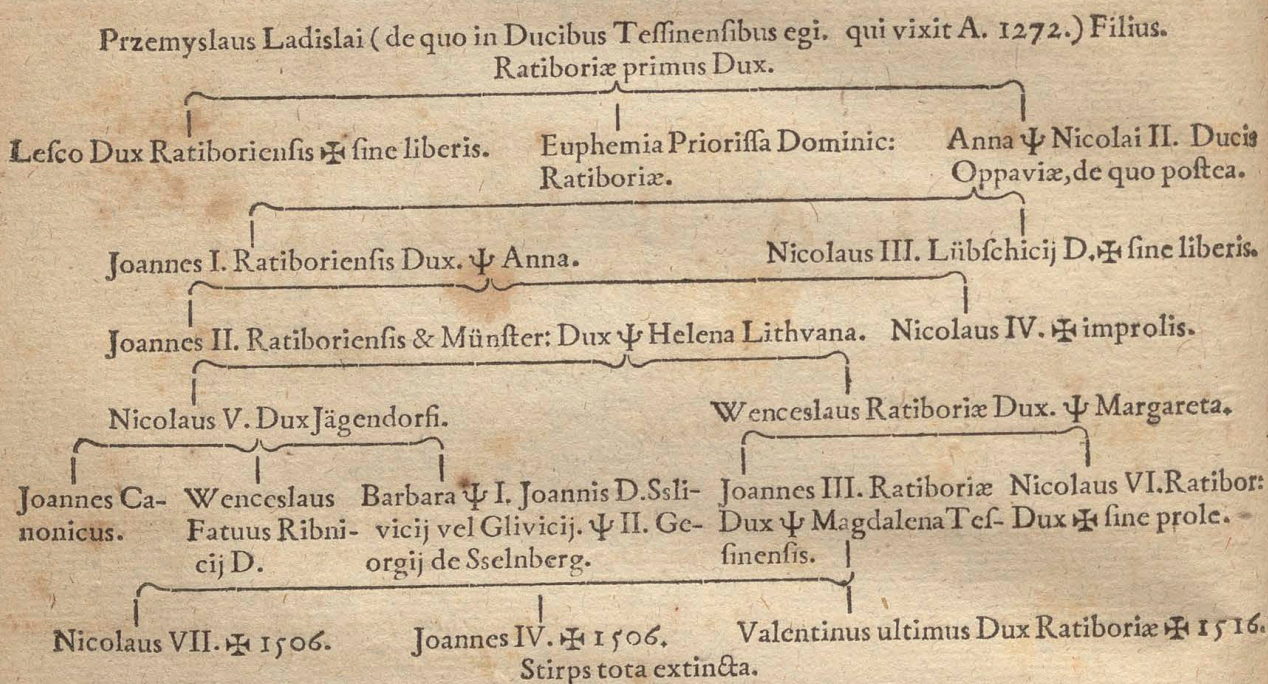 Przemyslaus Ladislai ( de quo in Ducibus Teſſinenſibus egi. qui vixit A. 1272.) Filius.
Ratiboriæ primus Dux.
Leſco Dux Ratiborienſis ✠ ſine liberis.
Euphemia Prioriſſa Dominic:
Ratiboriæ.
Anna Ψ Nicolai II. Ducis
Oppaviæ, de quo poſtea.
Joannes I. Ratiborienſis Dux. Ψ Anna.
Nicolaus III. Lübſchicij D. ✠ ſine liberis.
Joannes II. Ratiborienſis & Münſter: Dux Ψ Helena Lithvana.
Nicolaus IV. ✠ improlis.
Nicolaus V. Dux Jägendorfi.
Wenceslaus Ratiboriæ Dux. Ψ Margareta.
Joannes Ca-
nonicus.
Wenceslaus
Fatuus Ribni-
cij D.
Barbara Ψ I. Joannis D. Ssli-
vicij vel Glivicij. Ψ II. Ge-
orgij de Sselnberg.
Joannes III. Ratiboriæ
Dux Ψ Magdalena Teſ-
ſinenſis.
Nicolaus VI. Ratibor:
Dux ✠ ſine prole.
Nicolaus VII. ✠ 1506.
Joannes IV. ✠ 1506.
Valentinus ultimus Dux Ratiboriæ ✠ 1516.
Stirps tota extincta.